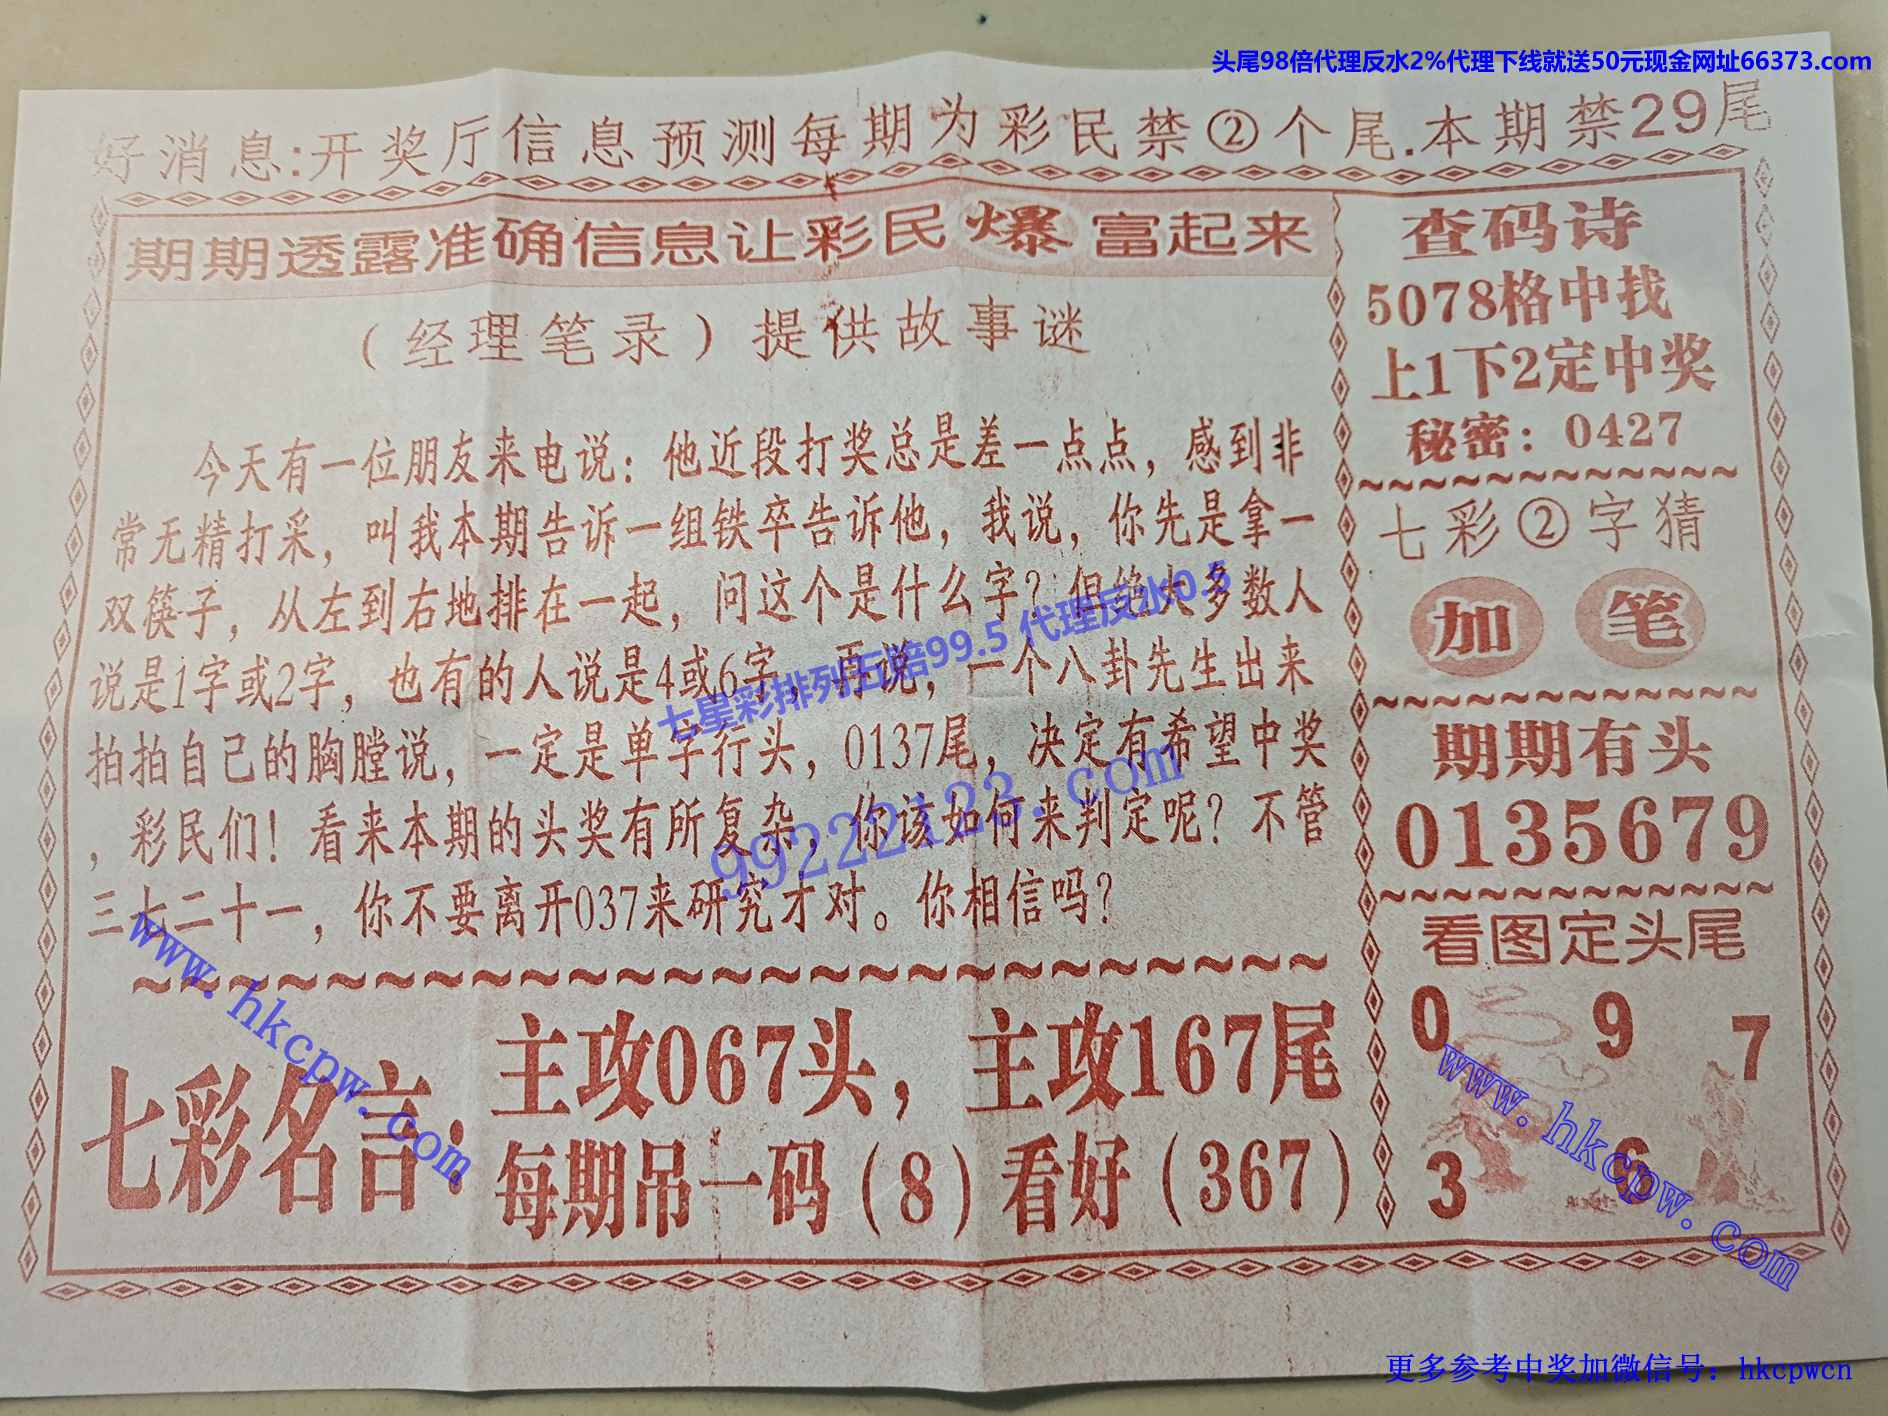 头尾98倍代理反水2%代理下线就送50元现金网址66373.com
好消息:开奖厅信息预测每期为彩民禁②个尾.本期禁29尾
期期透露准确信息让彩民爆富起来
（经理笔录）提供故事谜
今天有一位朋友来电说：他近段打奖总是差一点点，感到非
常无精打采，叫我本期告诉一组铁卒告诉他，我说，你先是拿一
双筷子，从左到右地排在一起，问这个是什么字？但绝大多数人
说是1字或2字，也有的人说是4或6字，再说，一个八卦先生出来
拍拍自己的胸膛说，一定是单字行头，0137尾，决定有希望中奖
，彩民们！看来本期的头奖有所复杂，你该如何来判定呢？不管
三七二十一，你不要离开037来研究才对。你相信吗？
七彩名言：
主攻067头，主攻167尾
每期吊一码（8）看好（367）
查码诗
5078格中找
上1下2定中奖
秘密：0427
七彩②字猜
加 笔
期期有头
0135679
看图定头尾
0 9 7
3 6
七星彩排列五赔99.5 代理反水0.5
99222123.com
www.hkcpw.com
www.hkcpw.com
更多参考中奖加微信号：hkcpwcn